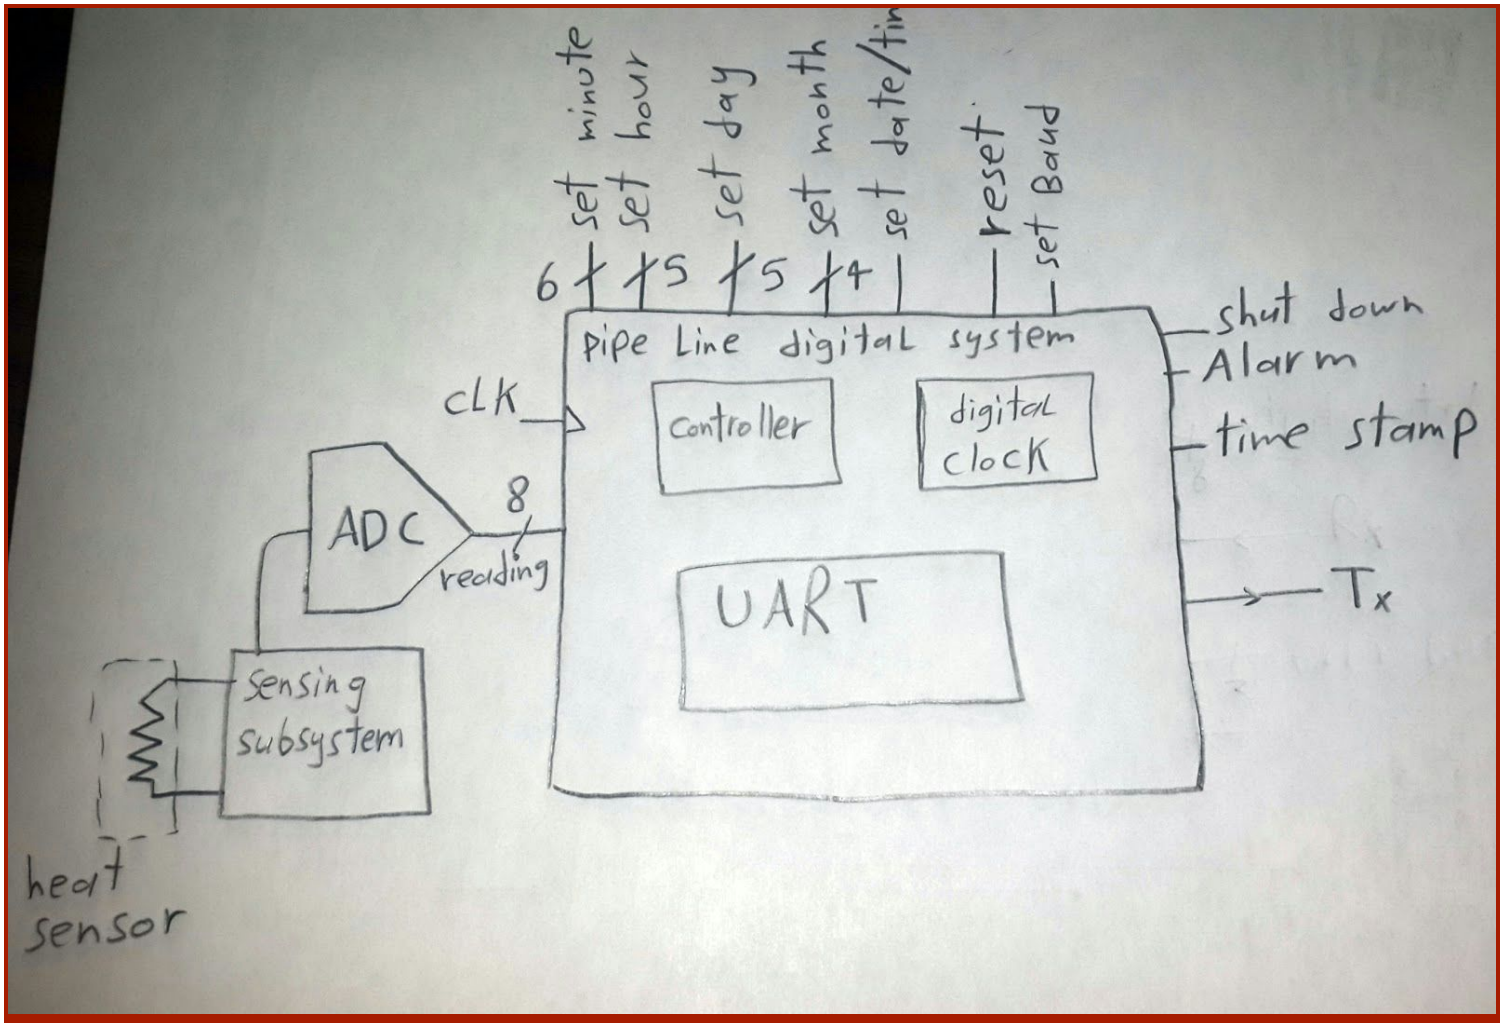 set minute
set hour
set day
set month
set date/tim
reset
set Baud
6
5
5
4
pipe Line digital system
shut down
Alarm
time stamp
CLK
controller
digital
clock
ADC
8
reading
UART
Tx
sensing
subsystem
heat
sensor